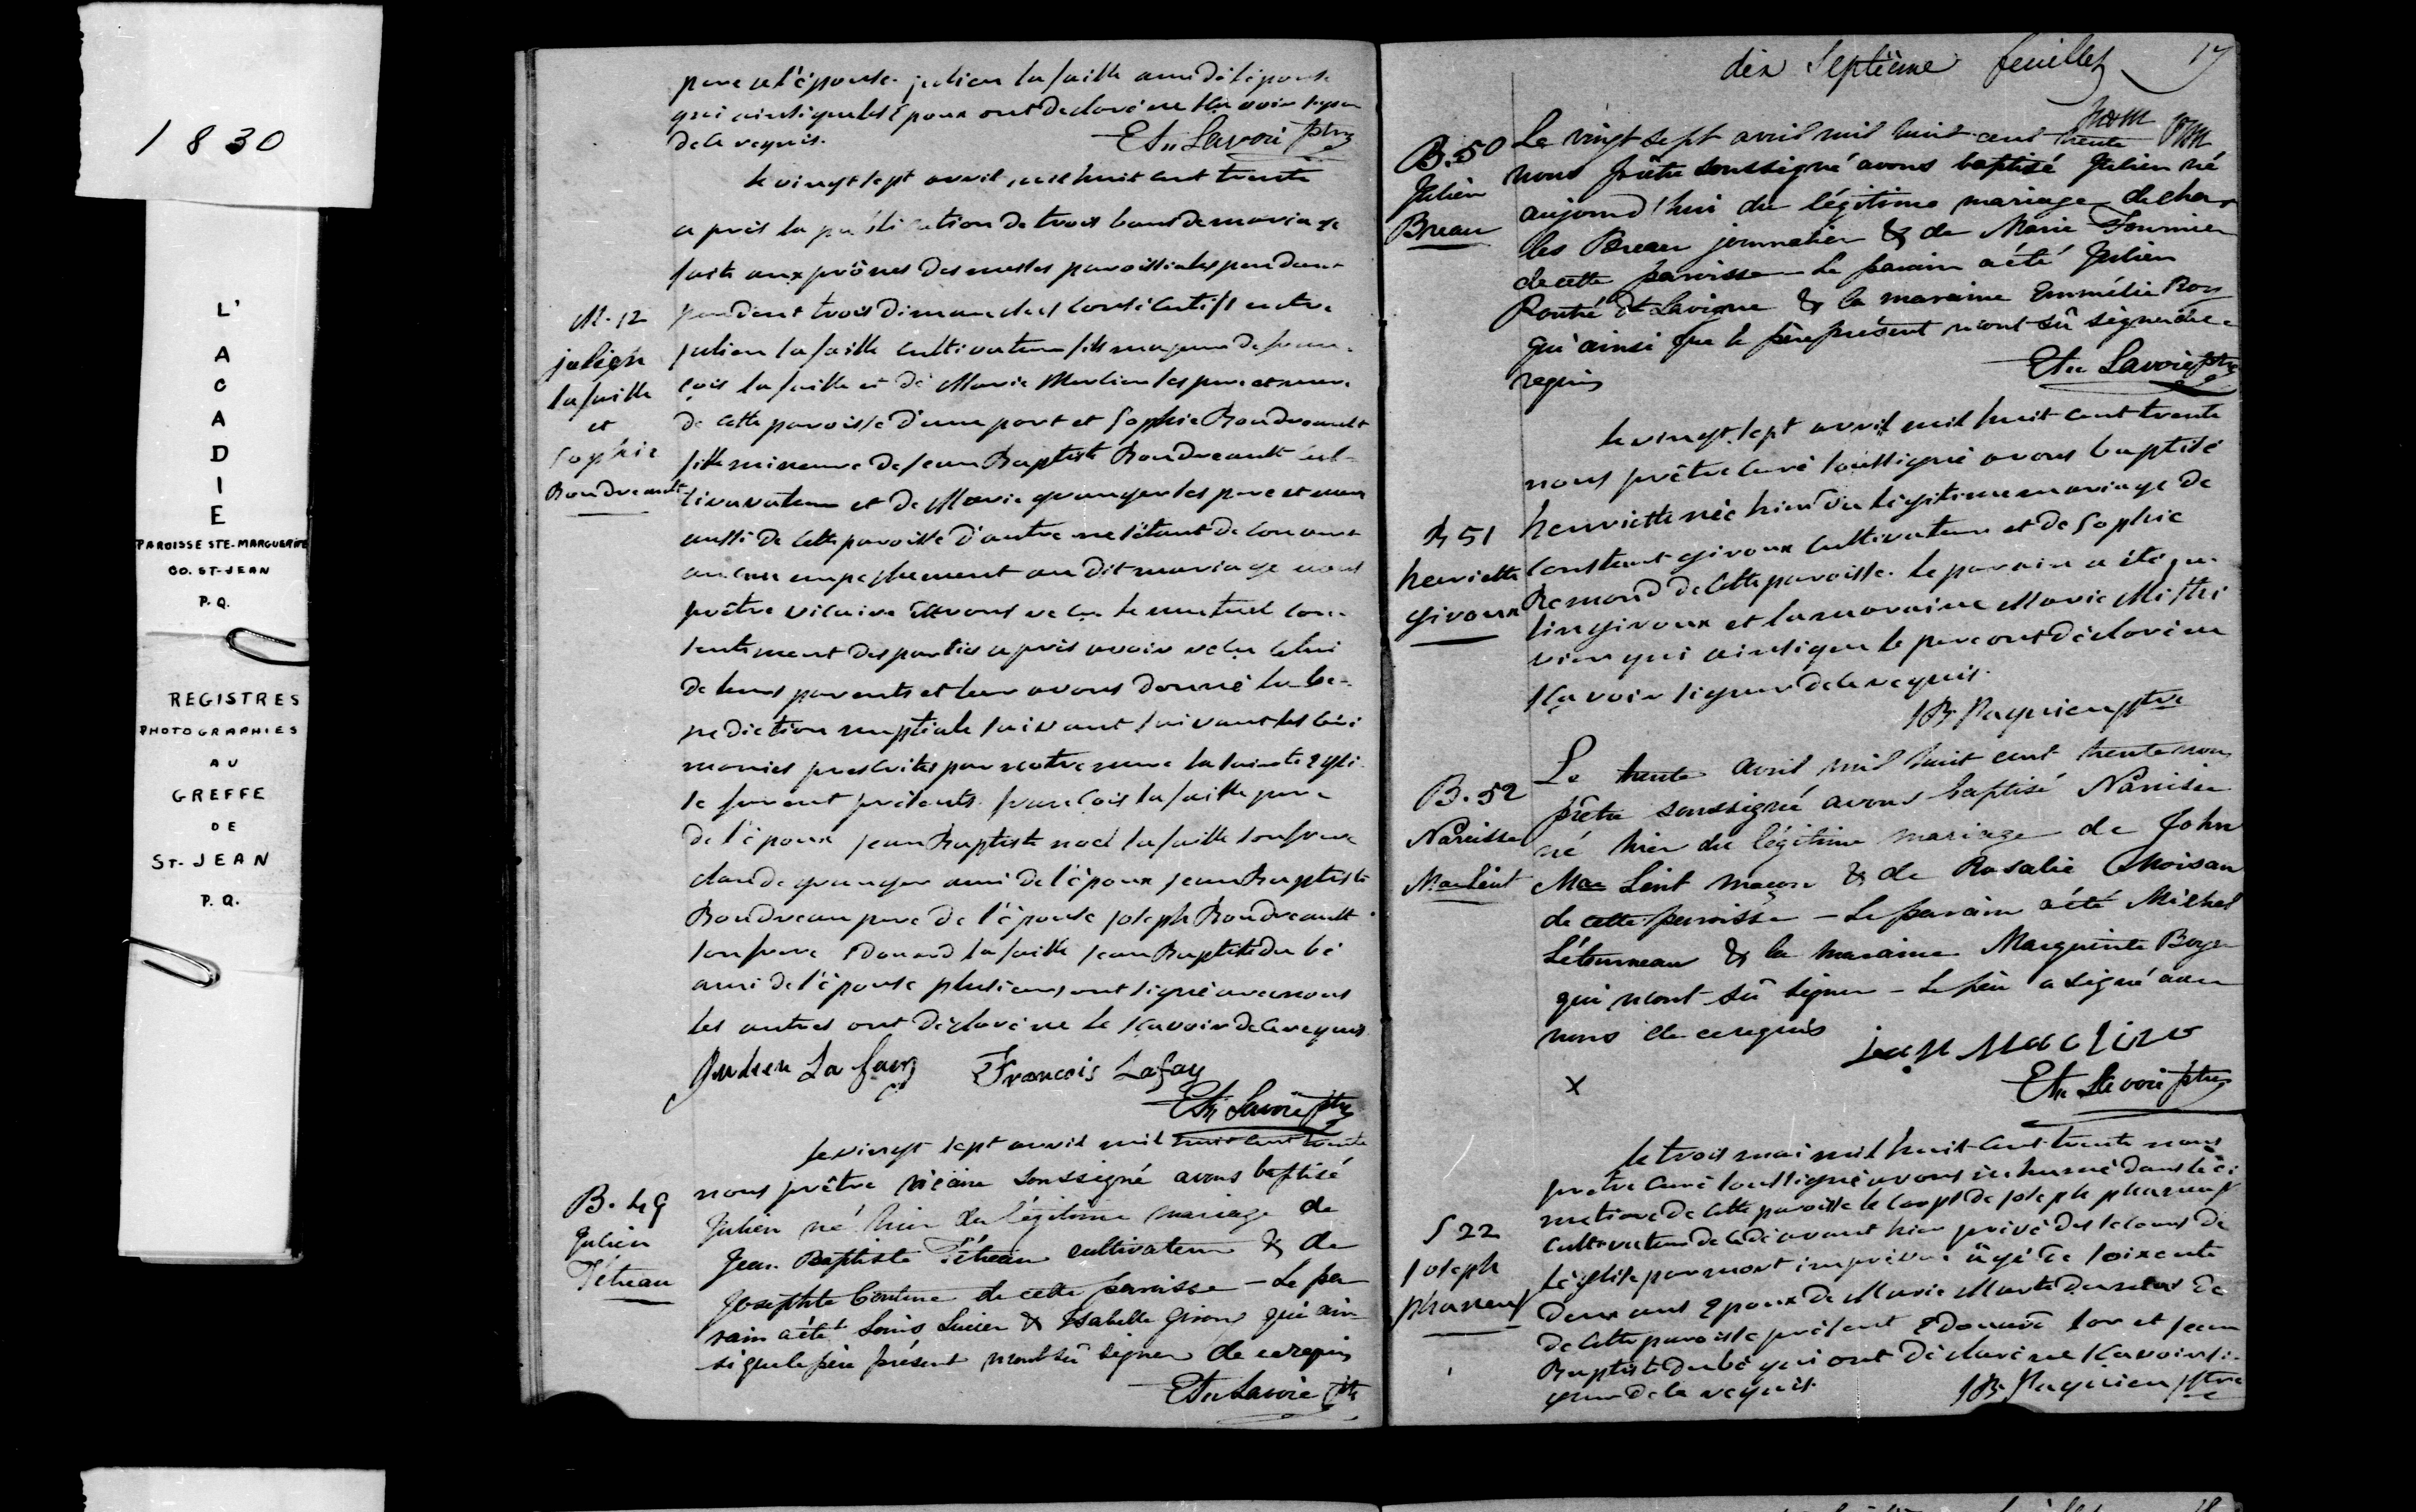 1830
L'
A
C
A
D
I
E
PAROISSE STE-MARGUERITE
CO. ST-JEAN
P.Q.
REGISTRES
PHOTOGRAPHIES
AU
GREFFE
DE
ST-JEAN
P.Q.
pere de l'épouse julien lafaille ami de l'épouse
qui ainsi que les époux ont déclaré ne sçavoir signer
de ce requis.
Etn Lavoie ptre
le vingt sept avril mil huit cent trente
après la publication de trois bans de mariage
faite aux prônes des messes paroissiales pendant
M. 12
julien
lafaille
et
Sophie
Boudreault
pendant trois dimanches consécutifs entre
julien lafaille cultivateur fils majeur de fran
çois lafaille et de Marie ses pere et mere
de cette paroisse d'une part et Sophie Boudreault
fille mineure de jean Baptiste Boudreault cul
tivavateur et de Marie granger ses pere et mere
aussi de cette paroisse d'autre ne s'étant decouvert
aucun empechement au dit mariage nous
prêtre vicaire avons reçu le mutuel con
sentement des parties après avoir reçu celui
de leurs parents et leur avons donné la be
nediction nuptiale suivant suivant les ceré
monies prescrites par notre mere la sainte egli
se furent présents françois lafaille pere
de l'époux jean Baptiste noel lafaille son frere
claude granger ami de l'époux jean Baptiste
Boudreau pere de l'épouse joseph Boudreault
son frere Edouard lafaille jean Baptiste dubé
ami de l'épouse plusieurs ont signé avec nous
les autres ont déclaré ne le sçavoir de ce requis
Julien La fay François Lafay
Etn Lavoie ptre
B. 49
Julien
Tétreau
le vingt sept avril mil huit cent trente
nous prêtre vicaire soussigné avons baptisé
Julien né hier du légitime mariage de
Jean Baptiste Tétreau cultivateur & de
Josephte de cette paroisse – Le pa
rain a été Louis Lucier & Isabelle Giroux qui ain
si que le père présent n'ont sû signer de ce requis
Etn Lavoie ptre
dix Septième feuillet 17
B. 50
Julien
Breau
Le vingt sept avril mil huit cent trente
nous prêtre soussigné avons baptisé Julien né
aujourd'hui du légitime mariage de char
les Breau journalier & de Marie Fournier
de cette paroisse – Le parain a été Julien
dt Lavigne & la maraine Emmélie Roy
qui ainsi que le père présent n'ont sû signer de ce
requis
Etn Lavoie ptre
B 51
henriette
giroux
le vingt sept avril mil huit cent trente
nous prêtre curé soussigné avons baptisé
henriette née hier du légitime mariage de
Constant giroux cultivateur et de Sophie
Remond de cette paroisse. le parain a été ju
lien giroux et la maraine Marie
qui ainsi que le pere ont déclaré ne
sçavoir signer de ce requis.
JB Paquin ptre
B. 52
Narcisse
Maclint
Le trente avril mil huit cent trente nous
prêtre soussigné avons baptisé Narcisse
né hier du légitime mariage de John
Mac Lint maçon & de Rosalie Choisan
de cette paroisse – Le parain a été Michel
Létourneau & la maraine Marguerite Boyer
qui n'ont sû signer – Le père a signé avec
nous de ce requis
Etn Lavoie ptre
X
S 22
Joseph
pharenf
le trois mai mil huit cent trente nous
prêtre curé soussigné avons inhumé dans le ci
metiere de cette paroisse le corps de joseph
cultivateur décédé avant hier privé des secours de
l'église par mort imprévue âgé de soixante
deux ans Epoux de Marie
de cette paroisse présent Edouard et jean
Baptiste dubé qui ont déclaré ne sçavoir si
gner de ce requis.
JB Paquin ptre